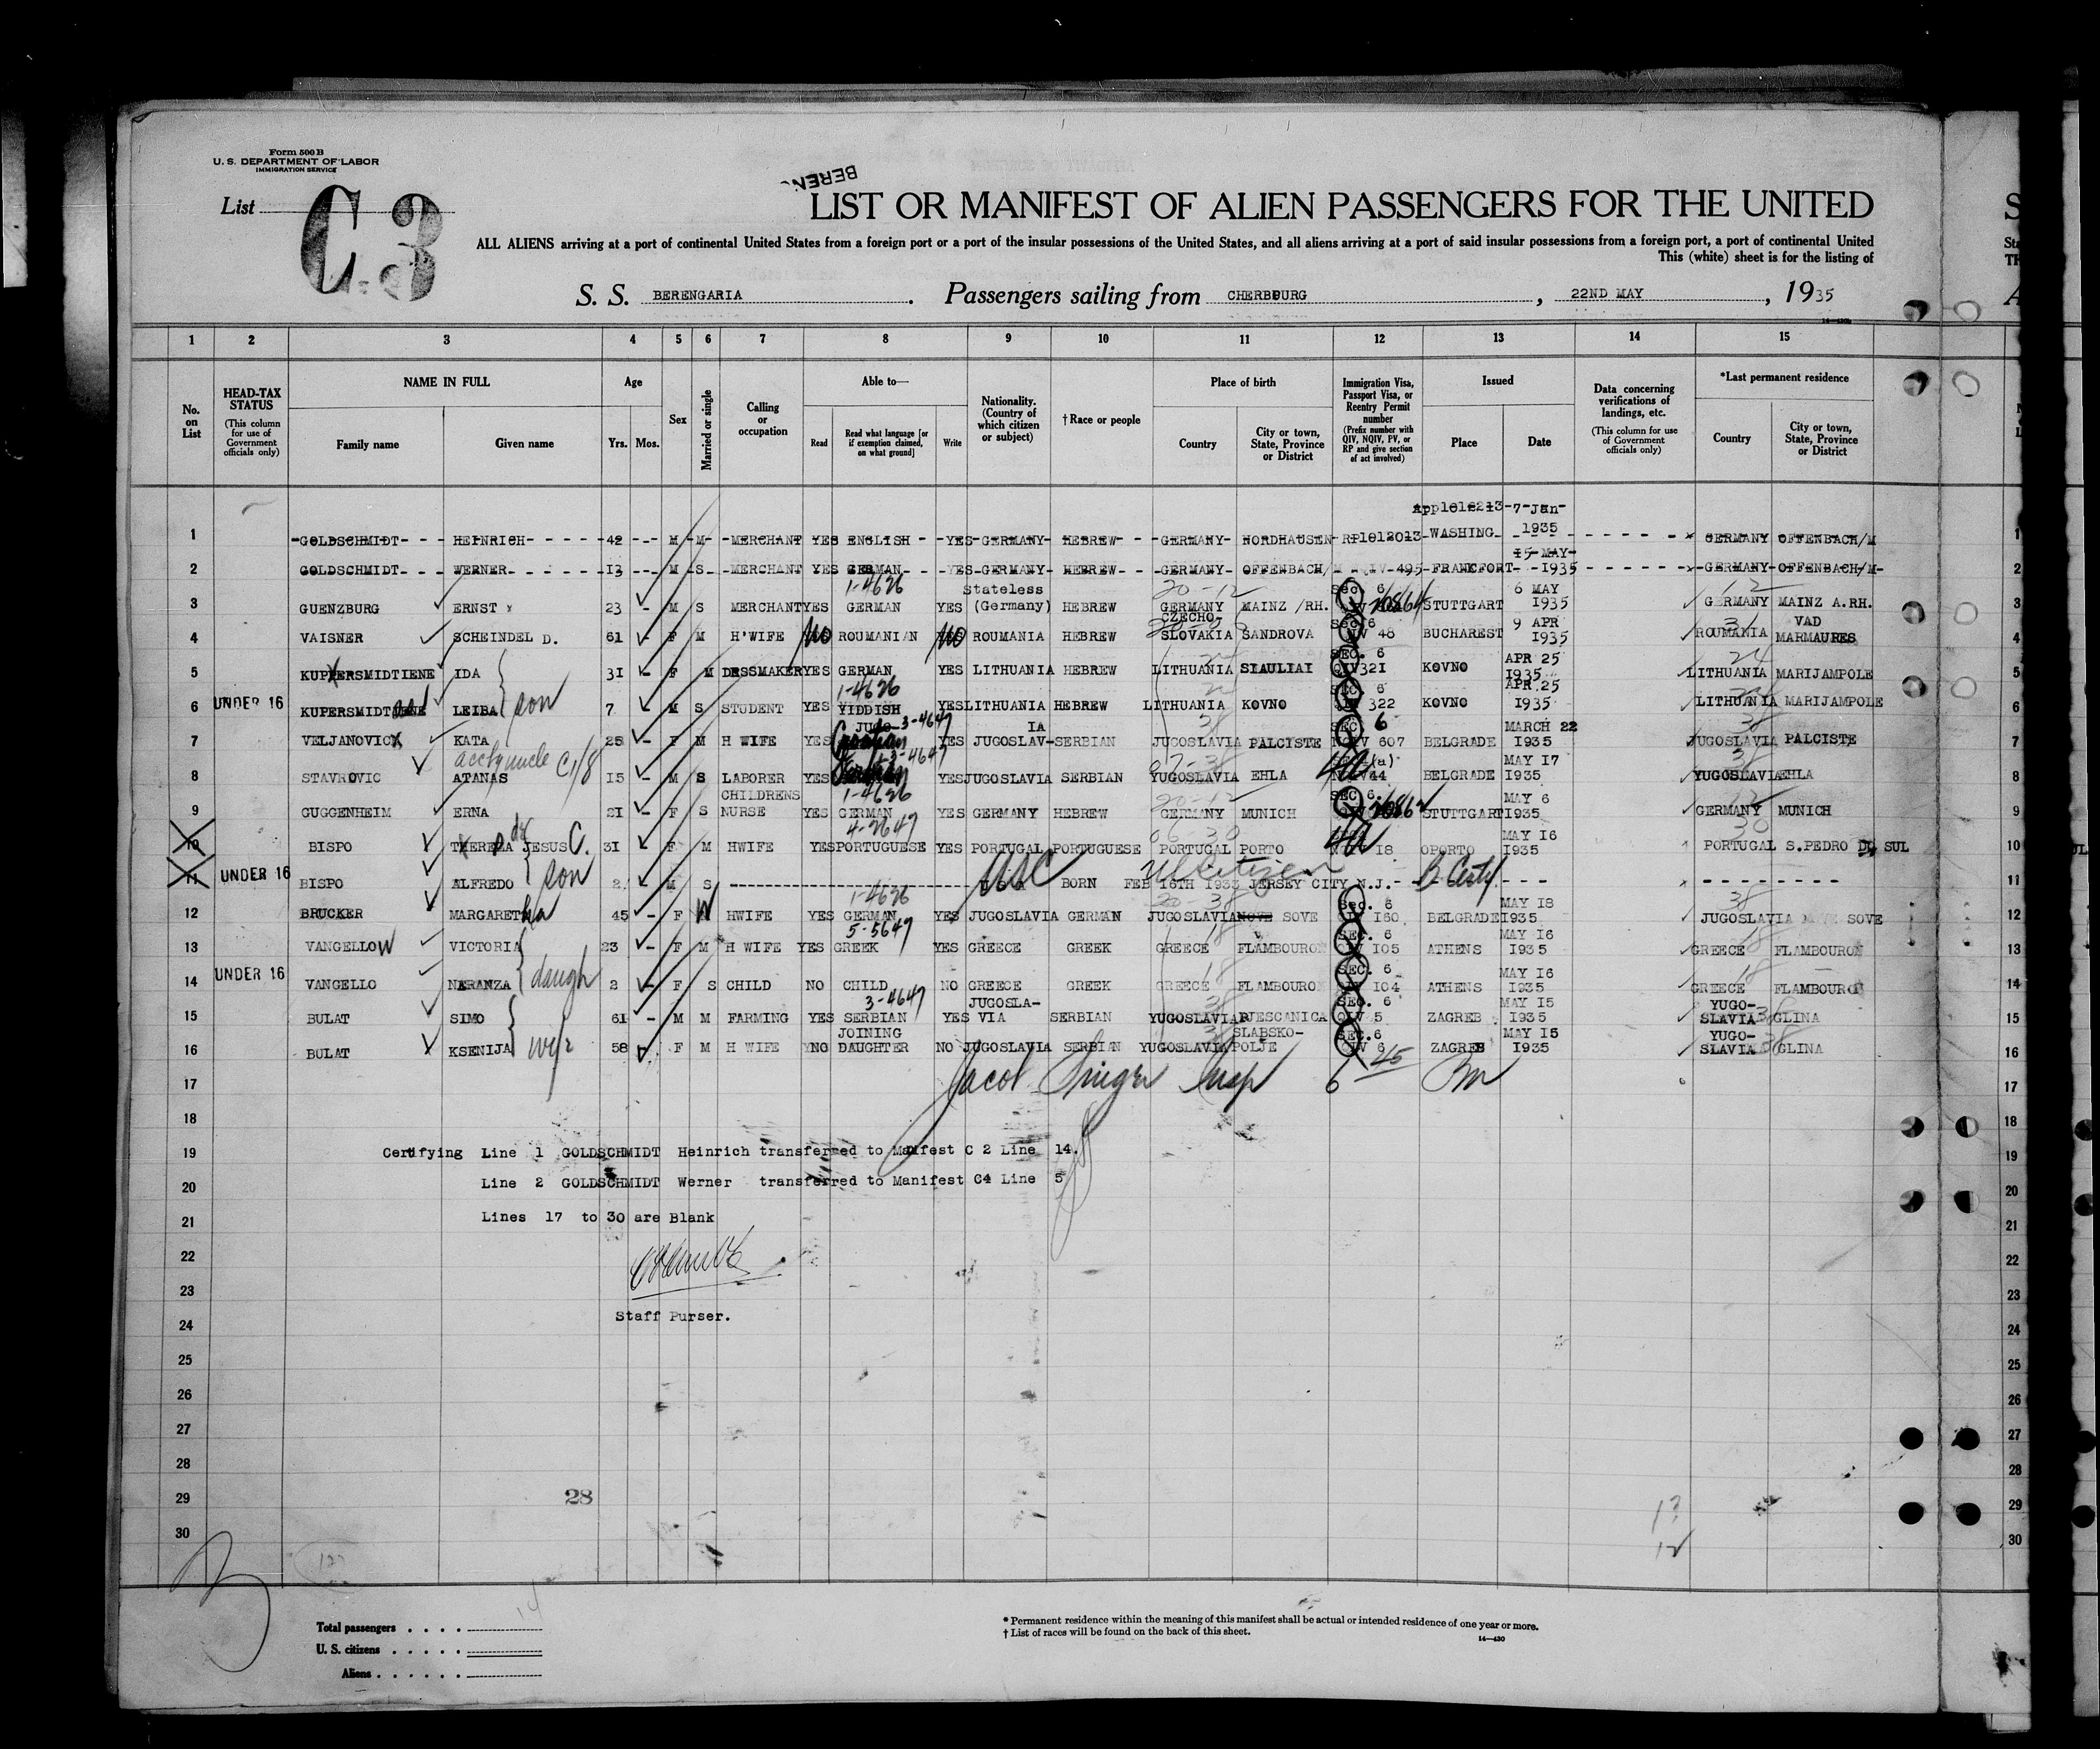 Form 500 B
U. S. DEPARTMENT OF LABOR
IMMIGRATION SERVICE
List C 3
BEREN
LIST OR MANIFEST OF ALIEN PASSENGERS FOR THE UNITED
ALL ALIENS arriving at a port of continental United States from a foreign port or a port of the insular possessions of the United States, and all aliens arriving at a port of said insular possessions from a foreign port, a port of continental United
This (white) sheet is for the listing of
S. S. BERENGARIA . Passengers sailing from CHERBOURG , 22ND MAY , 1935
1 2 3 4 5 6 7 8 9 10 11 12 13 14 15
No. on List
HEAD-TAX STATUS (This column for use of Government officials only)
NAME IN FULL
Family name Given name
Age
Yrs. Mos.
Sex
Married or single
Calling or occupation
Able to—
Read Read what language [or if exemption claimed, on what ground] Write
Nationality. (Country of which citizen or subject)
† Race or people
Place of birth
Country City or town, State, Province or District
Immigration Visa, Passport Visa, or Reentry Permit number (Prefix number with QIV, NQIV, PV, or RP and give section of act involved)
Issued
Place Date
Data concerning verifications of landings, etc. (This column for use of Government officials only)
*Last permanent residence
Country City or town, State, Province or District
1 GOLDSCHMIDT HEINRICH 42 M M MERCHANT YES ENGLISH YES GERMANY HEBREW GERMANY NORDHAUSEN RP1012013 WASHING 7-Jan- 1935 GERMANY OFFENBACH/M 1
2 GOLDSCHMIDT WERNER 13 M S MERCHANT YES GERMAN YES GERMANY HEBREW GERMANY OFFENBACH/M IV-495 FRANCFORT 15-MAY- 1935 GERMANY OFFENBACH/M 2
3 GUENZBURG ERNST 23 - M S MERCHANT YES GERMAN 1-4626 YES Stateless (Germany) HEBREW 20-12 GERMANY MAINZ /RH. Sec. 6 STUTTGART 6 MAY 1935 GERMANY MAINZ A.RH. 3
4 VAISNER SCHEINDEL D. 61 - F M H'WIFE NO ROUMANIAN NO ROUMANIA HEBREW CZECHO-SLOVAKIA SANDROVA Sec 6 48 BUCHAREST 9 APR 1935 ROUMANIA VAD MARMAURES 4
5 KUPERSMIDTIENE IDA 31 - F M DRSSMAKER YES GERMAN YES LITHUANIA HEBREW LITHUANIA SIAULIAI SEC. 6 321 KOVNO APR 25 1935 LITHUANIA MARIJAMPOLE 5
6 UNDER 16 KUPERSMIDT LEIBA son 7 M S STUDENT YES 1-4626 YIDDISH YES LITHUANIA HEBREW LITHUANIA KOVNO SEC. 6 322 KOVNO APR. 25 1935 LITHUANIA MARIJAMPOLE 6
7 VELJANOVIC KATA 25 - F M H WIFE YES JUGO- 3-4647 YES JUGOSLAV-IA SERBIAN JUGOSLAVIA PALCISTE SEC 6 607 BELGRADE MARCH 22 1935 JUGOSLAVIA PALCISTE 7
8 STAVROVIC ATANAS 15 - M S LABORER YES 3-4647 YES JUGOSLAVIA SERBIAN YUGOSLAVIA EHLA (a) 44 BELGRADE MAY 17 1935 YUGOSLAVIA EHLA 8
9 GUGGENHEIM ERNA 21 - F S CHILDRENS NURSE YES 1-4626 GERMAN YES GERMANY HEBREW 20-12 GERMANY MUNICH SEC 6. STUTTGART MAY 6 1935 GERMANY MUNICH 9
10 BISPO THEREZA de JESUS C. 31 - F M HWIFE YES 4-2647 PORTUGUESE YES PORTUGAL PORTUGUESE 06-30 PORTUGAL PORTO 18 OPORTO MAY 16 1935 30 PORTUGAL S.PEDRO DO SUL 10
11 UNDER 16 BISPO ALFREDO son 2 M S USC BORN FEB 16TH 1933 JERSEY CITY N.J. US Citizen 11
12 BRUCKER MARGARETHA 45 - F W HWIFE YES 1-4626 GERMAN YES JUGOSLAVIA GERMAN JUGOSLAVIA SOVE Sec. 6 160 BELGRADE MAY 18 1935 38 JUGOSLAVIA SOVE 12
13 VANGELLOW VICTORIA 23 - F M H WIFE YES 5-5647 GREEK YES GREECE GREEK GREECE FLAMBOURON SEC. 6 105 ATHENS MAY 16 1935 GREECE FLAMBOURON 13
14 UNDER 16 VANGELLO NERANZA daugh 2 - F S CHILD NO CHILD NO GREECE GREEK GREECE FLAMBOURO SEC. 6 104 ATHENS MAY 16 1935 GREECE FLAMBOURO 14
15 BULAT SIMO 61 - M M FARMING YES 3-4647 SERBIAN YES JUGOSLA-VIA SERBIAN YUGOSLAVIA DJESCANICA SEC. 6 5 ZAGREB MAY 15 1935 YUGO-SLAVIA GLINA 15
16 BULAT KSENIJA wife 58 F M H WIFE NO JOINING DAUGHTER NO JUGOSLAVIA SERBIAN YUGOSLAVIA SLABSKO-POLJE SEC.6 6 ZAGREB MAY 15 1935 YUGO-SLAVIA GLINA 16
17 Jacob Singer Insp 6 17
18 18
19 Certifying Line 1 GOLDSCHMIDT Heinrich transferred to Manifest C 2 Line 14. 19
20 Line 2 GOLDSCHMIDT Werner transferred to Manifest C4 Line 5 20
21 Lines 17 to 30 are Blank 21
22 22
23 23
24 Staff Purser. 24
25 25
26 26
27 27
28 28
29 28 29
30 30
Total passengers
U. S. citizens
Aliens
* Permanent residence within the meaning of this manifest shall be actual or intended residence of one year or more.
† List of races will be found on the back of this sheet.
14—430